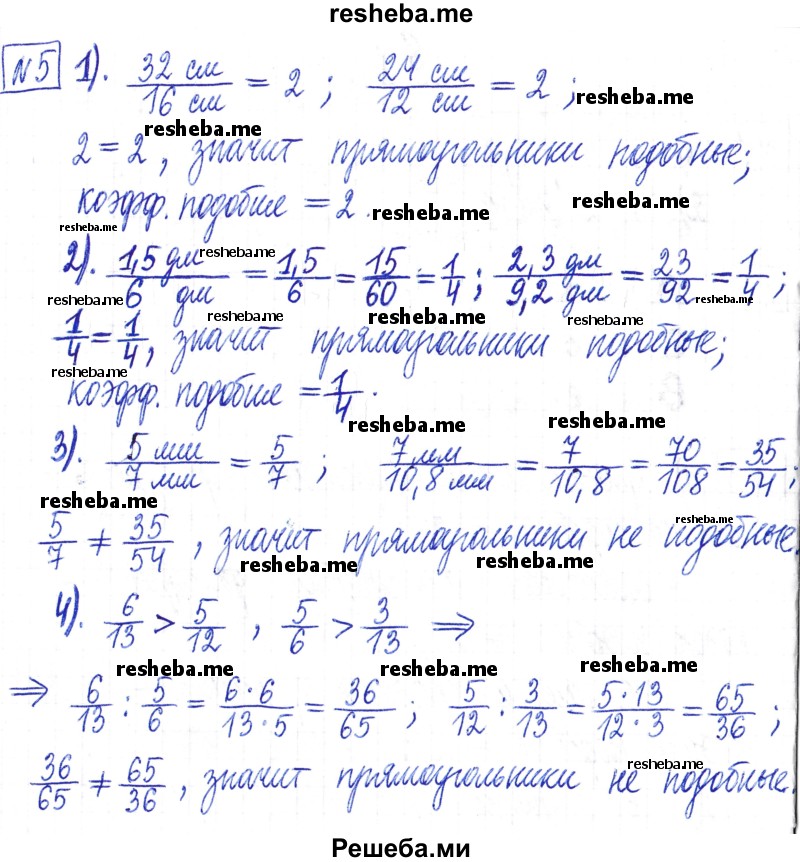 resheba.me
№5 1). 32 см/16 см = 2 ; 24 см/12 см = 2 ; resheba.me
resheba.me
2 = 2 , значит прямоугольники подобные;
коэфф. подобие = 2 . resheba.me resheba.me
resheba.me resheba.me
2). 1,5 дм/6 дм = 1,5/6 = 15/60 = 1/4 ; 2,3 дм/9,2 дм = 23/92 = 1/4 ;
resheba.me resheba.me
resheba.me resheba.me resheba.me
1/4 = 1/4 , значит прямоугольники подобные;
resheba.me
коэфф. подобие = 1/4 .
resheba.me resheba.me
3). 5 мм/7 мм = 5/7 ; 7 мм/10,8 мм = 7/10,8 = 70/108 = 35/54 ;
resheba.me resheba.me
5/7 ≠ 35/54 , значит прямоугольники не подобные.
resheba.me resheba.me
4). 6/13 > 5/12 , 5/6 > 3/13 ⇒
resheba.me resheba.me resheba.me
⇒ 6/13 : 5/6 = 6·6/13·5 = 36/65 ; 5/12 : 3/13 = 5·13/12·3 = 65/36 ;
resheba.me resheba.me
36/65 ≠ 65/36 , значит прямоугольники не подобные.
resheba.me resheba.me
Решеба.ми